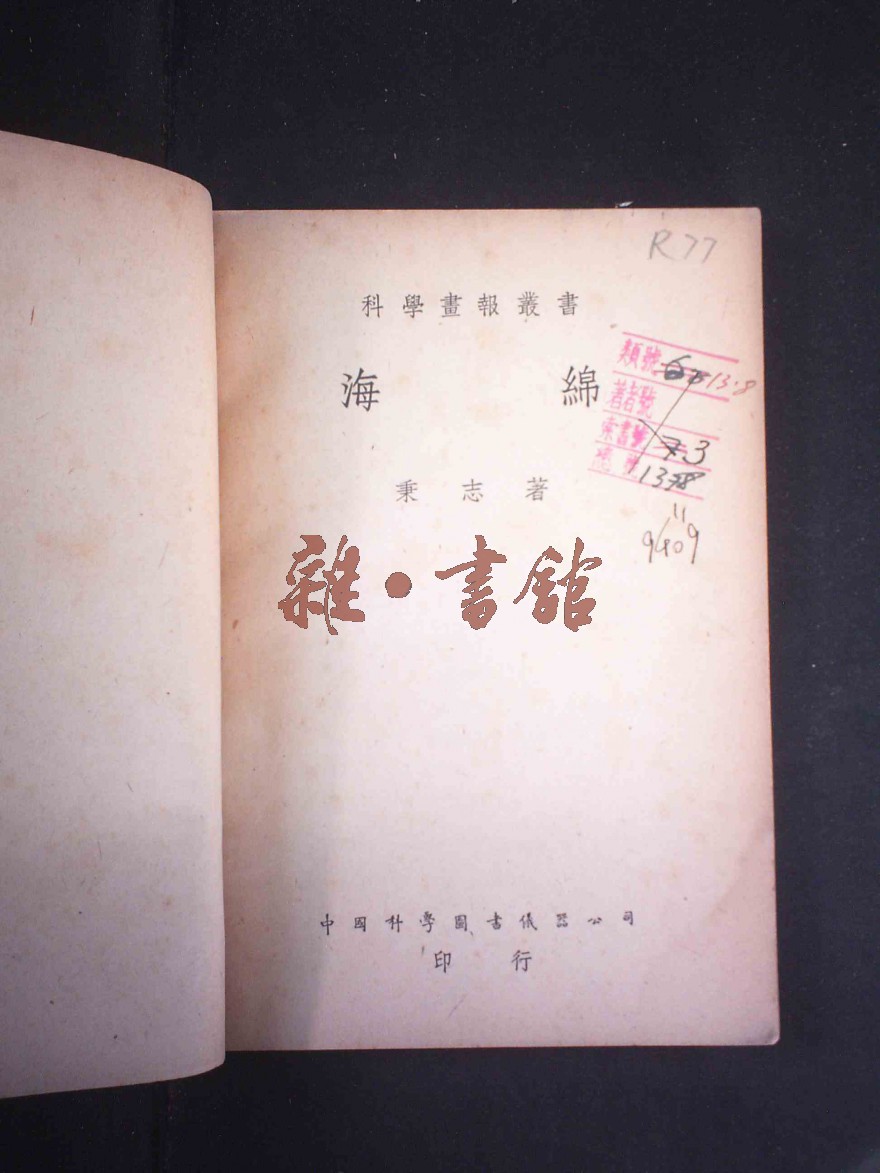 R77
科學畫報叢書
海綿
類號 13.8
著者號
索書號 3
1378
秉志著
9409
雜·書館
中國科學圖書儀器公司
印行